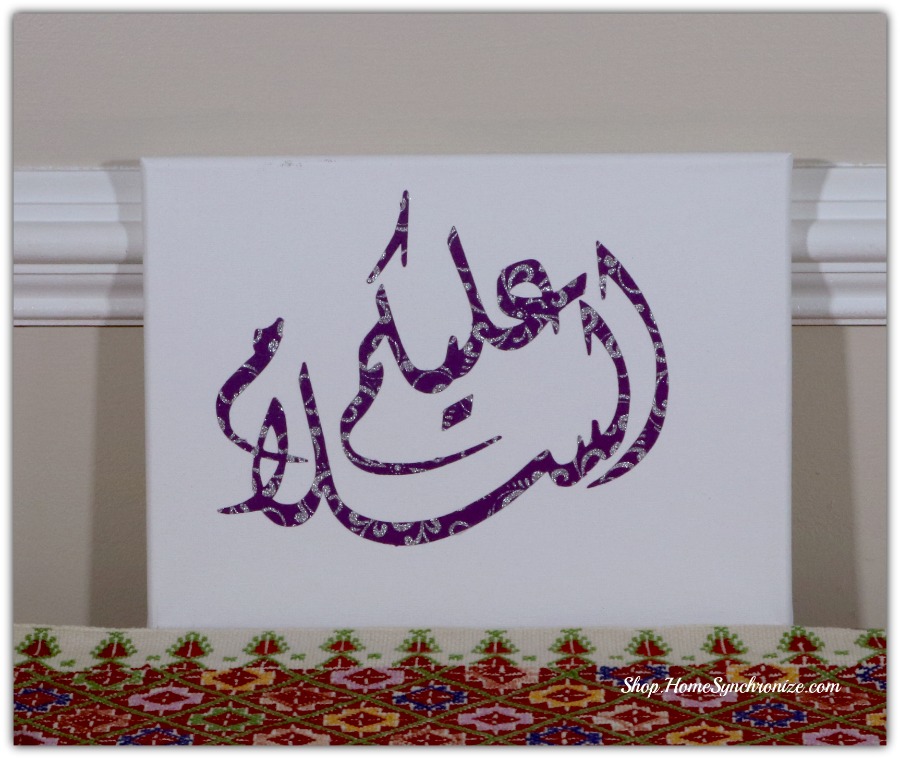 السلام
عليكم
Shop.HomeSynchronize.com